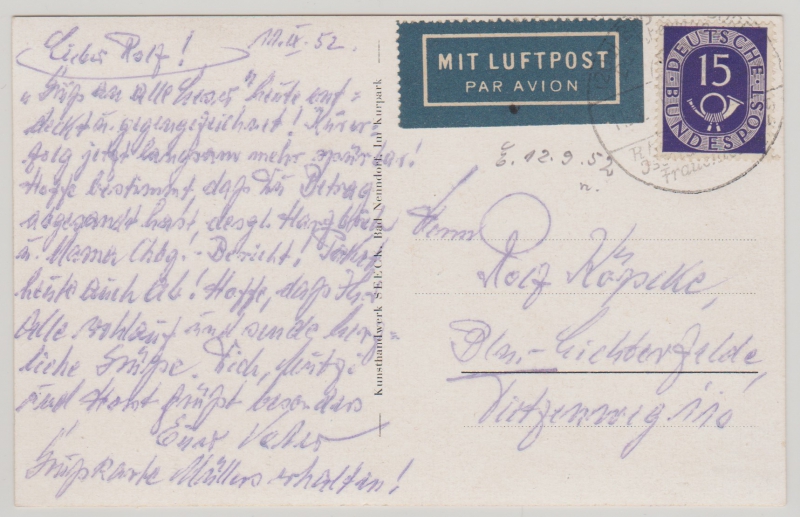 Lieber Rolf! 11.IX.52.
„Gruß an alle heute ent-
deckt u. gegengezeichnet! Kurer-
folg jetzt langsam mehr spürbar!
Hoffe bestimmt, daß Du Betrag
abgesandt hast, desgl.
u. Mama Chbg.-Bericht!
heute auch ab! Hoffe, daß Ihr
Alle wohlauf und sende herz-
liche Grüße. Dich, Mutzi
und Horst grüßt besonders
Euer Vater
Grußkarte Müllers erhalten!
Kunsthandwerk SEECK, Bad Nenndorf, Im Kurpark
MIT LUFTPOST
PAR AVION
DEUTSCHE BUNDESPOST
15
Frauen
12.9.52
Herrn
Rolf Köpcke,
Bln.-Lichterfelde,